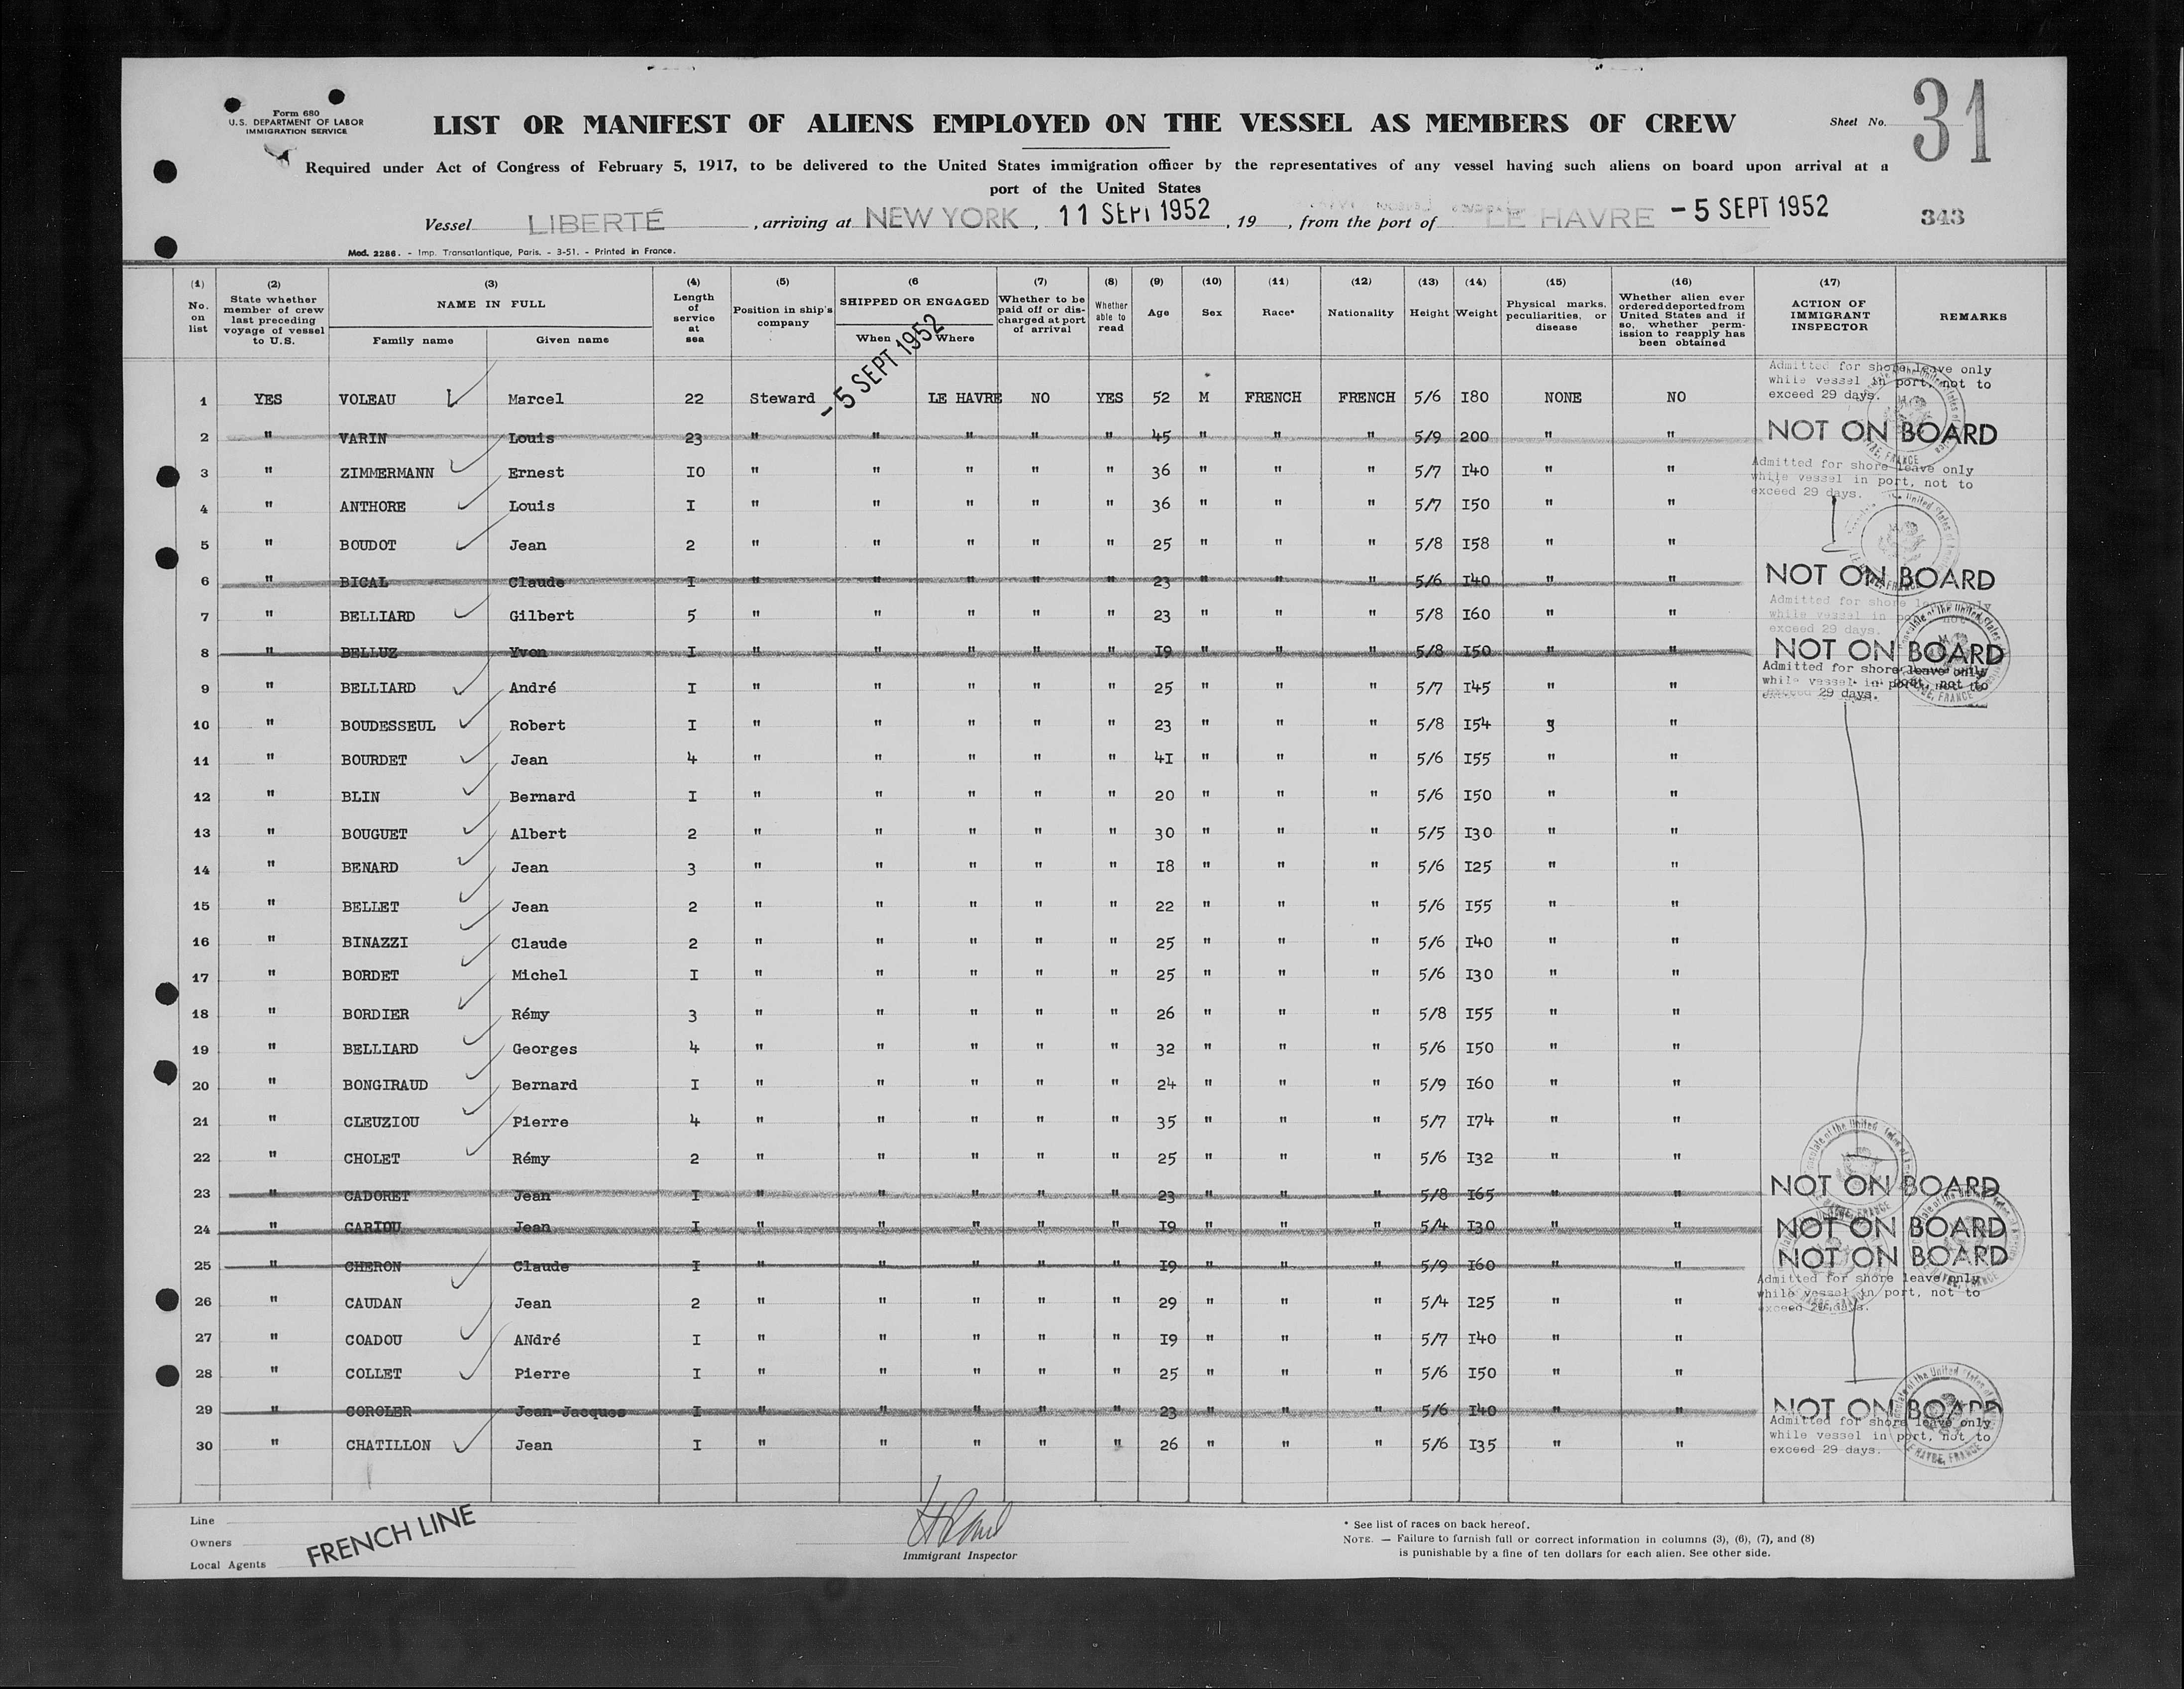 Form 680
U.S. DEPARTMENT OF LABOR
IMMIGRATION SERVICE
LIST OR MANIFEST OF ALIENS EMPLOYED ON THE VESSEL AS MEMBERS OF CREW
Sheet No. 31
Required under Act of Congress of February 5, 1917, to be delivered to the United States immigration officer by the representatives of any vessel having such aliens on board upon arrival at a
port of the United States
Vessel LIBERTÉ , arriving at NEW YORK , 11 SEPT 1952 , 19 , from the port of LE HAVRE - 5 SEPT 1952
343
Mod. 2286. - Imp. Transatlantique, Paris. - 3-51. - Printed in France.
(1) No. on list
(2) State whether member of crew last preceding voyage of vessel to U.S.
(3) NAME IN FULL Family name Given name
(4) Length of service at sea
(5) Position in ship's company
(6 SHIPPED OR ENGAGED When Where
(7) Whether to be paid off or discharged at port of arrival
(8) Whether able to read
(9) Age
(10) Sex
(11) Race*
(12) Nationality
(13) Height
(14) Weight
(15) Physical marks, peculiarities, or disease
(16) Whether alien ever ordered deported from United States and if so, whether permission to reapply has been obtained
(17) ACTION OF IMMIGRANT INSPECTOR
REMARKS
- 5 SEPT 1952
Admitted for shore leave only
while vessel in port, not to
exceed 29 days.
1 YES VOLEAU Marcel 22 Steward LE HAVRE NO YES 52 M FRENCH FRENCH 5/6 I80 NONE NO
2 " VARIN Louis 23 " " " " " 45 " " " 5/9 200 " " NOT ON BOARD
3 " ZIMMERMANN Ernest IO " " " " " 36 " " " 5/7 I40 " "
Admitted for shore leave only
while vessel in port, not to
exceed 29 days.
4 " ANTHORE Louis I " " " " " 36 " " " 5/7 I50 " "
5 " BOUDOT Jean 2 " " " " " 25 " " " 5/8 I58 " "
6 " BICAL Claude I " " " " " 23 " " " 5/6 I40 " " NOT ON BOARD
7 " BELLIARD Gilbert 5 " " " " " 23 " " " 5/8 I60 " "
Admitted for shore leave only
while vessel in port, not to
exceed 29 days.
8 " BELLUZ Yvon I " " " " " I9 " " " 5/8 I50 " " NOT ON BOARD
Admitted for shore leave only
while vessel in port, not to
exceed 29 days.
9 " BELLIARD André I " " " " " 25 " " " 5/7 I45 " "
10 " BOUDESSEUL Robert I " " " " " 23 " " " 5/8 I54 3 "
11 " BOURDET Jean 4 " " " " " 4I " " " 5/6 I55 " "
12 " BLIN Bernard I " " " " " 20 " " " 5/6 I50 " "
13 " BOUGUET Albert 2 " " " " " 30 " " " 5/5 I30 " "
14 " BENARD Jean 3 " " " " " I8 " " " 5/6 I25 " "
15 " BELLET Jean 2 " " " " " 22 " " " 5/6 I55 " "
16 " BINAZZI Claude 2 " " " " " 25 " " " 5/6 I40 " "
17 " BORDET Michel I " " " " " 25 " " " 5/6 I30 " "
18 " BORDIER Rémy 3 " " " " " 26 " " " 5/8 I55 " "
19 " BELLIARD Georges 4 " " " " " 32 " " " 5/6 I50 " "
20 " BONGIRAUD Bernard I " " " " " 24 " " " 5/9 I60 " "
21 " CLEUZIOU Pierre 4 " " " " " 35 " " " 5/7 I74 " "
22 " CHOLET Rémy 2 " " " " " 25 " " " 5/6 I32 " "
23 " CADORET Jean I " " " " " 23 " " " 5/8 I65 " " NOT ON BOARD
24 " CARIOU Jean I " " " " " I9 " " " 5/4 I30 " " NOT ON BOARD
25 " CHERON Claude I " " " " " I9 " " " 5/9 I60 " " NOT ON BOARD
Admitted for shore leave only
while vessel in port, not to
exceed 29 days.
26 " CAUDAN Jean 2 " " " " " 29 " " " 5/4 I25 " "
27 " COADOU ANdré I " " " " " I9 " " " 5/7 I40 " "
28 " COLLET Pierre I " " " " " 25 " " " 5/6 I50 " "
29 " COROLER Jean-Jacques I " " " " " 23 " " " 5/6 I40 " " NOT ON BOARD
30 " CHATILLON Jean I " " " " " 26 " " " 5/6 I35 " "
Admitted for shore leave only
while vessel in port, not to
exceed 29 days.
Line
Owners
Local Agents
FRENCH LINE
Immigrant Inspector
* See list of races on back hereof.
NOTE. — Failure to furnish full or correct information in columns (3), (6), (7), and (8)
is punishable by a fine of ten dollars for each alien. See other side.